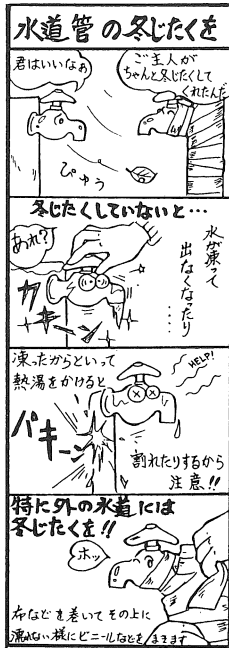 水道管の冬じたくを
ご主人が
ちゃんと冬じたくして
くれたんだ
君はいいなぁ
ぴゅう
冬じたくしていないと…
水が凍って
出なくなったり
……
あれ?
カキーン
凍ったからといって
熱湯をかけると
HELP!
パキーン
割れたりするから
注意!!
特に外の水道には
冬じたくを!!
ホッ
布などを巻いてその上に
濡れない様にビニールなどをまきます